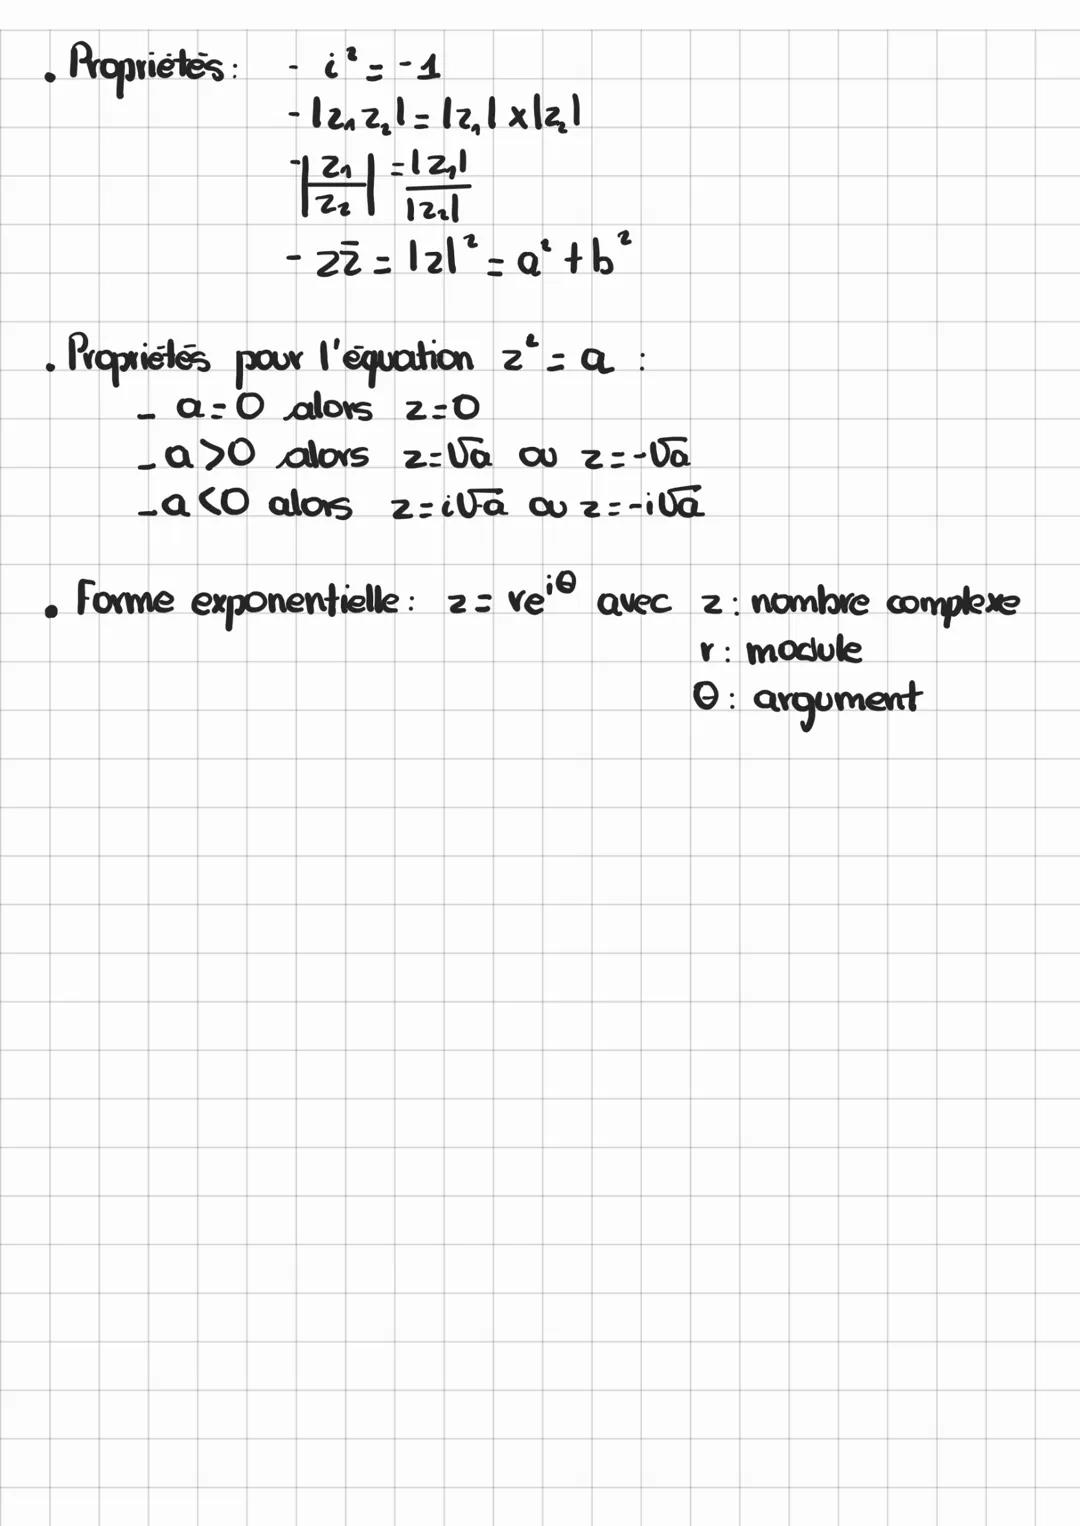 . Propriétés : - i² = -1
- |z₁ z₂| = |z₁| x |z₂|
- |z₁/z₂| = |z₁|/|z₂|
- zz̄ = |z|² = a² + b²
. Propriétés pour l'équation z² = a :
- a = 0 alors z = 0
- a > 0 alors z = √a ou z = -√a
- a < 0 alors z = i√-a ou z = -i√a
. Forme exponentielle : z = re^{iθ} avec z : nombre complexe
r : module
θ : argument